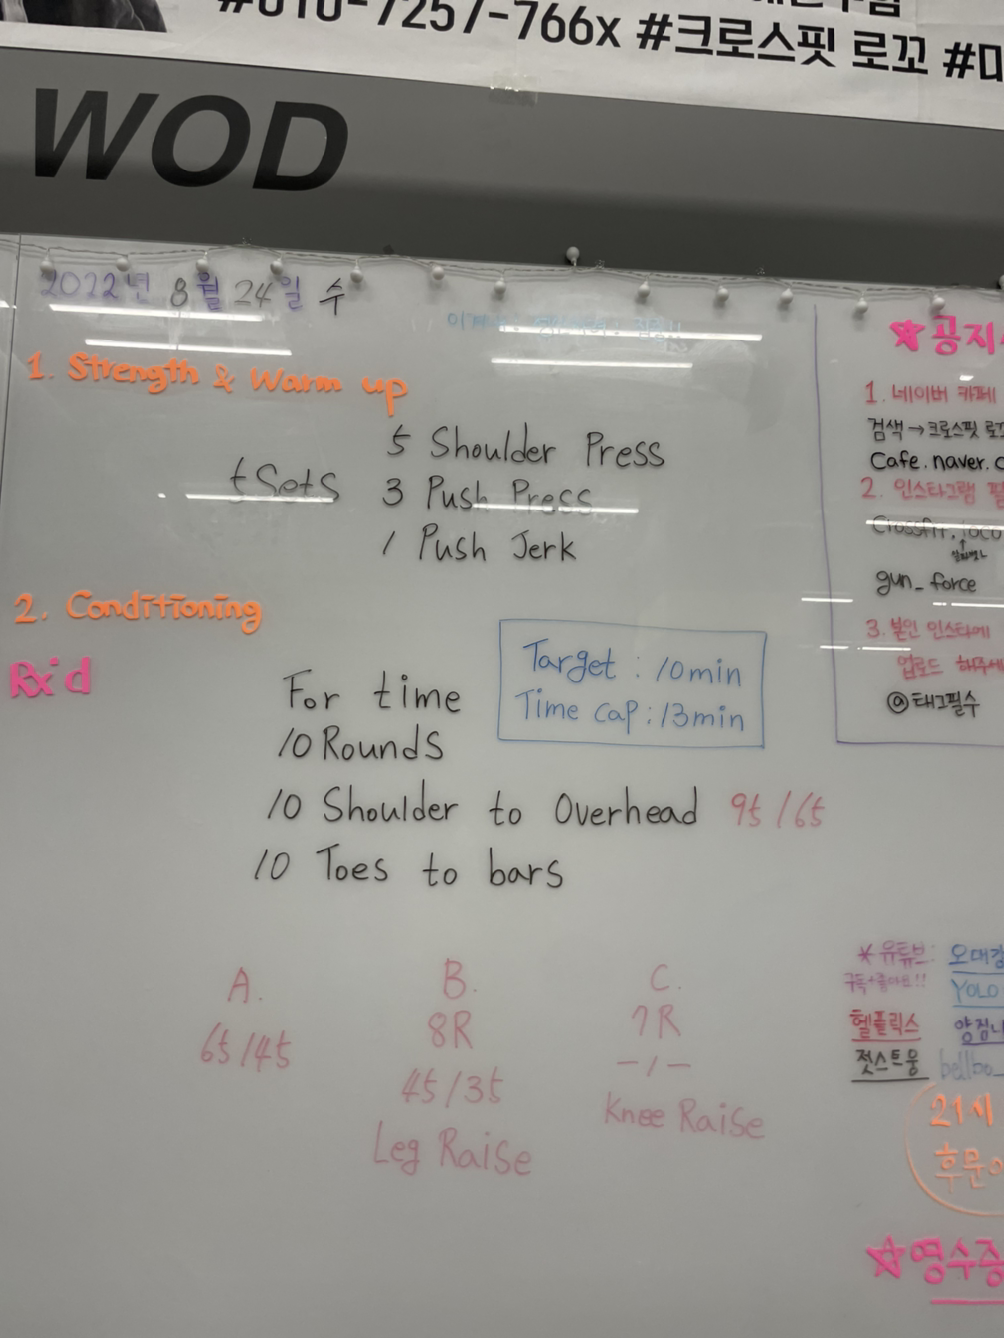 #010-7257-766x #크로스핏 로꼬 #미
WOD
2022년 8월 24일 수
1. Strength & Warm up
5 Shoulder Press
5 Sets 3 Push Press
1 Push Jerk
2. Conditioning
Rx'd
For time
10 Rounds
Target : 10min
Time cap : 13min
10 Shoulder to Overhead 95/65
10 Toes to bars
A.
65/45
B.
8R
45/35
Leg Raise
C.
7R
-/-
Knee Raise
☆공지
1. 네이버 카페
검색→크로스핏 로꼬
Cafe.naver.c
2. 인스타그램 팔
Crossfit.loco
gun_force
3. 본인 인스타에
업로드 해주세
@태그필수
*유튜브: 오매강
구독+좋아요!! YOLO
헬플릭스
젓스트웅 bellbo_
21시
후문
☆영수증